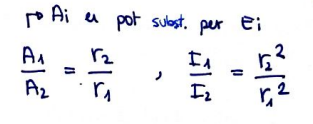 Ai es pot subst. per Ei
A₁/A₂ = r₂/r₁ , I₁/I₂ = r₂²/r₁²